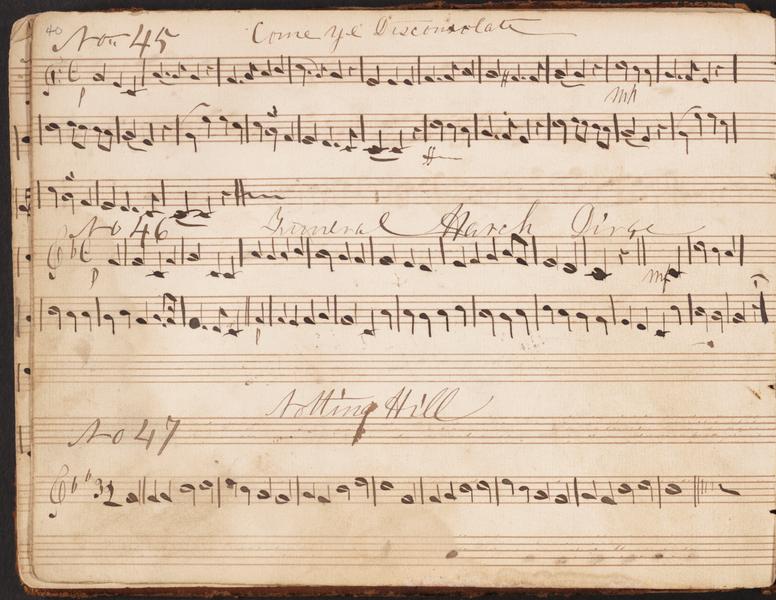 40
No 45 Come ye Disconsolate
p
mp
No 46 Funeral March Dirge
p
mf
p
Notting Hill
No 47